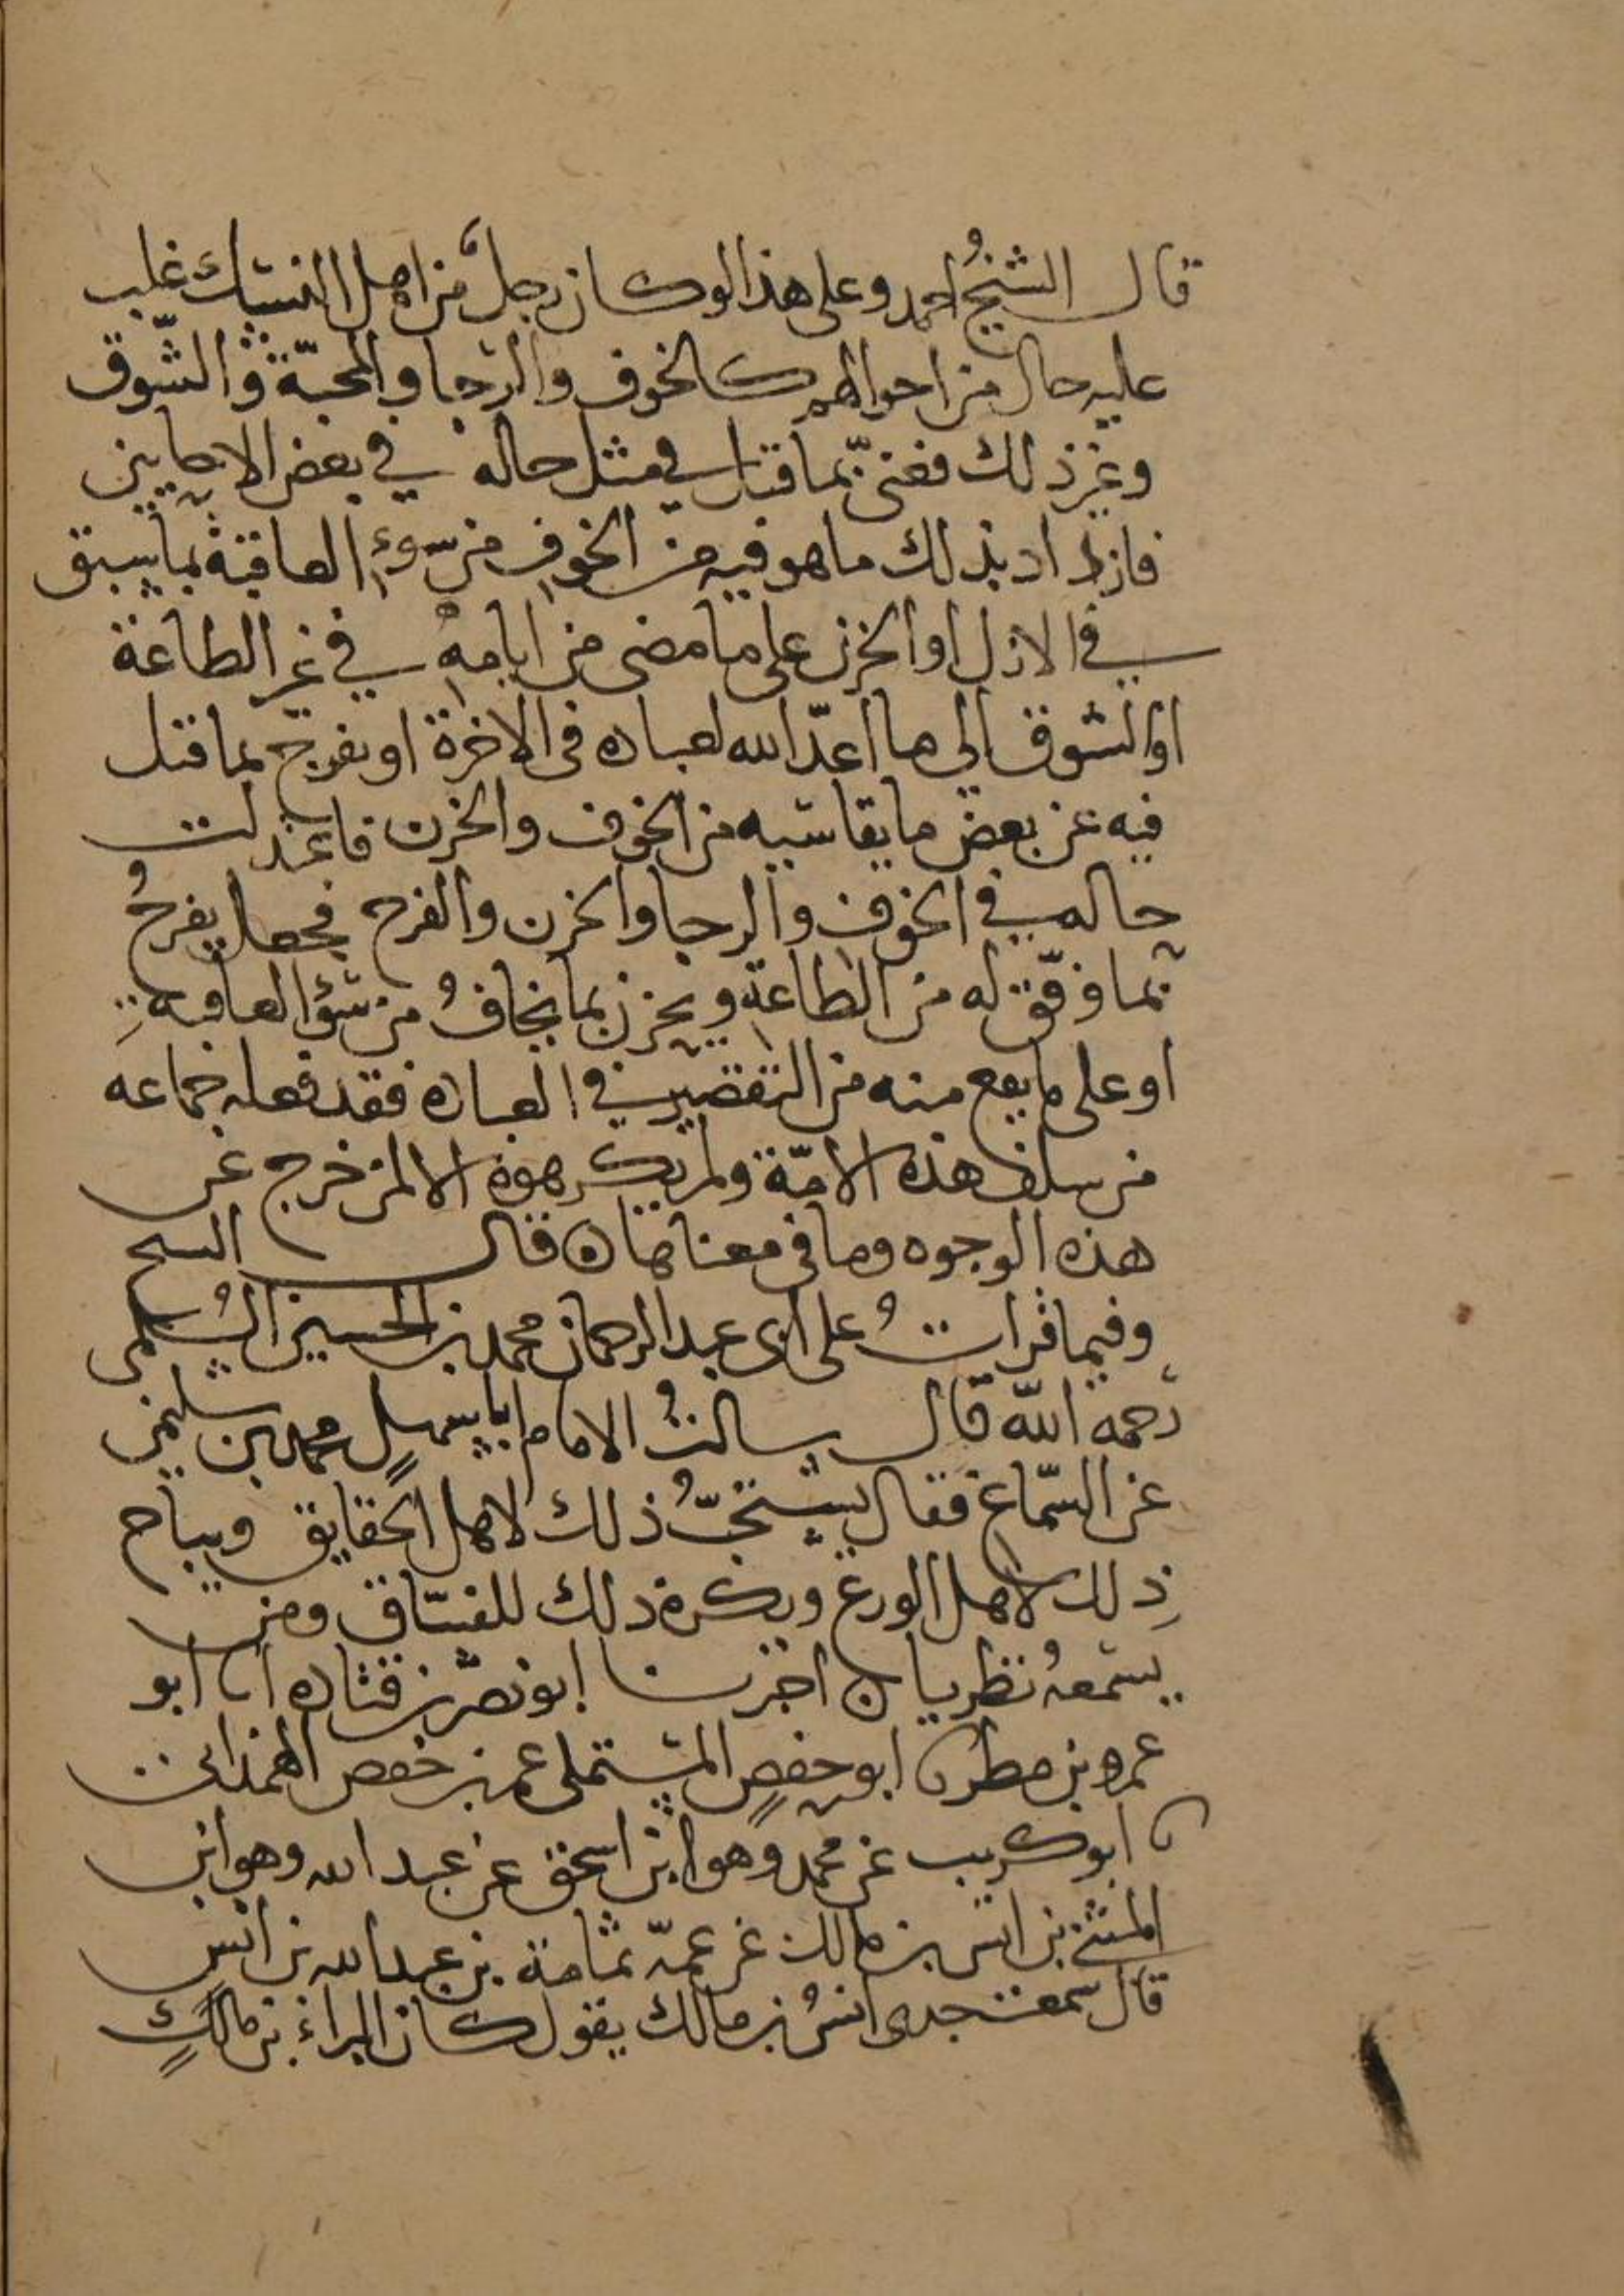 قال الشيخُ احمد وعلى هذا لو كان رجلٌ من اهل النسّاك غلب
عليه حال من احوالهم كالخوف والرجا والمحبّة والشّوق
وغير ذلك فغنى بما قيل في مثل حاله في بعض الاحايين
فازداد بذلك ما هو فيه من الخوف من سوءِ العاقبة بما سبق
في الازل او الحزن على ما مضى من ايامه في غير الطاعة
او الشوق الى ما اعدّ الله لعباده في الاخرة او يفرج بما قيل
فيه عن بعض ما يقاسيه من الخوف والحزن فاعتدلت
حاله في الخوف والرجا والحزن والفرح فجعل يفرحُ
بما وفّق له من الطاعة ويحزن بما يخافُ من سوٴ العاقبه
او على ما يقع منه من التقصير في العباده فقد فعله جماعه
من سلف هذه الامّة ولم يكرهوه الا لمن خرج عن
هذه الوجوه وما في معناها ه قال الشيخ
وفيما قراتُ على ابى عبد الرحمان محمد بن الحسين السُلمى
رحمه اللّه قال سالتُ الامام ابا سهلٍ محمد بن سليمن
عن السّماع فقال يستحبُّ ذلك لاهل الحقايق ويباح
ذلك لاهل الورع ويكره ذلك للفسّاق ومن
يسمعهُ تطربا ه اخبرنا ابو نصر بن قتاده انا ابو
عمرو بن مطر نا ابو حفصٍ المستملى عمر بن حفص الهمذانى
نا ابو كريب عن محمد وهو ابن اسحق عن عبد الله وهو ابن
المثنى بن انس بن مالك عن عمّه ثمامة بن عبد الله بن انس
قال سمعت جدى انسُ بن مالك يقول كان البراءُ بن مالكٍ